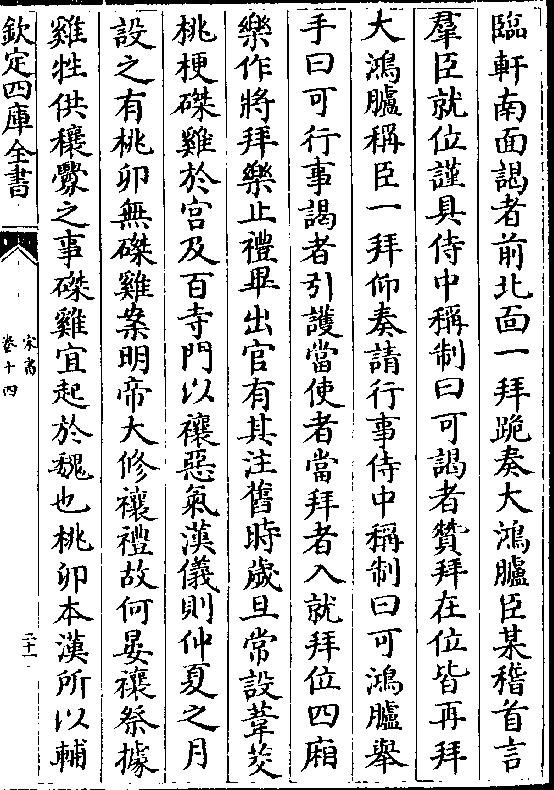 臨軒南面謁者前北面一拜跪奏大鴻臚臣某稽首言
羣臣就位謹具侍中稱制曰可謁者贊拜在位皆再拜
大鴻臚稱臣一拜仰奏請行事侍中稱制曰可鴻臚舉
手曰可行事謁者引護當使者當拜者入就拜位四廂
樂作將拜樂止禮畢出官有其注舊時歲旦常設葦茭
桃梗磔雞於宫及百寺門以禳惡氣漢儀則仲夏之月
設之有桃卯無磔雞案明帝大修禳禮故何晏禳祭據
雞牲供禳釁之事磔雞宜起於魏也桃卯本漢所以輔
欽定四庫全書
宋書
卷十四
二十一